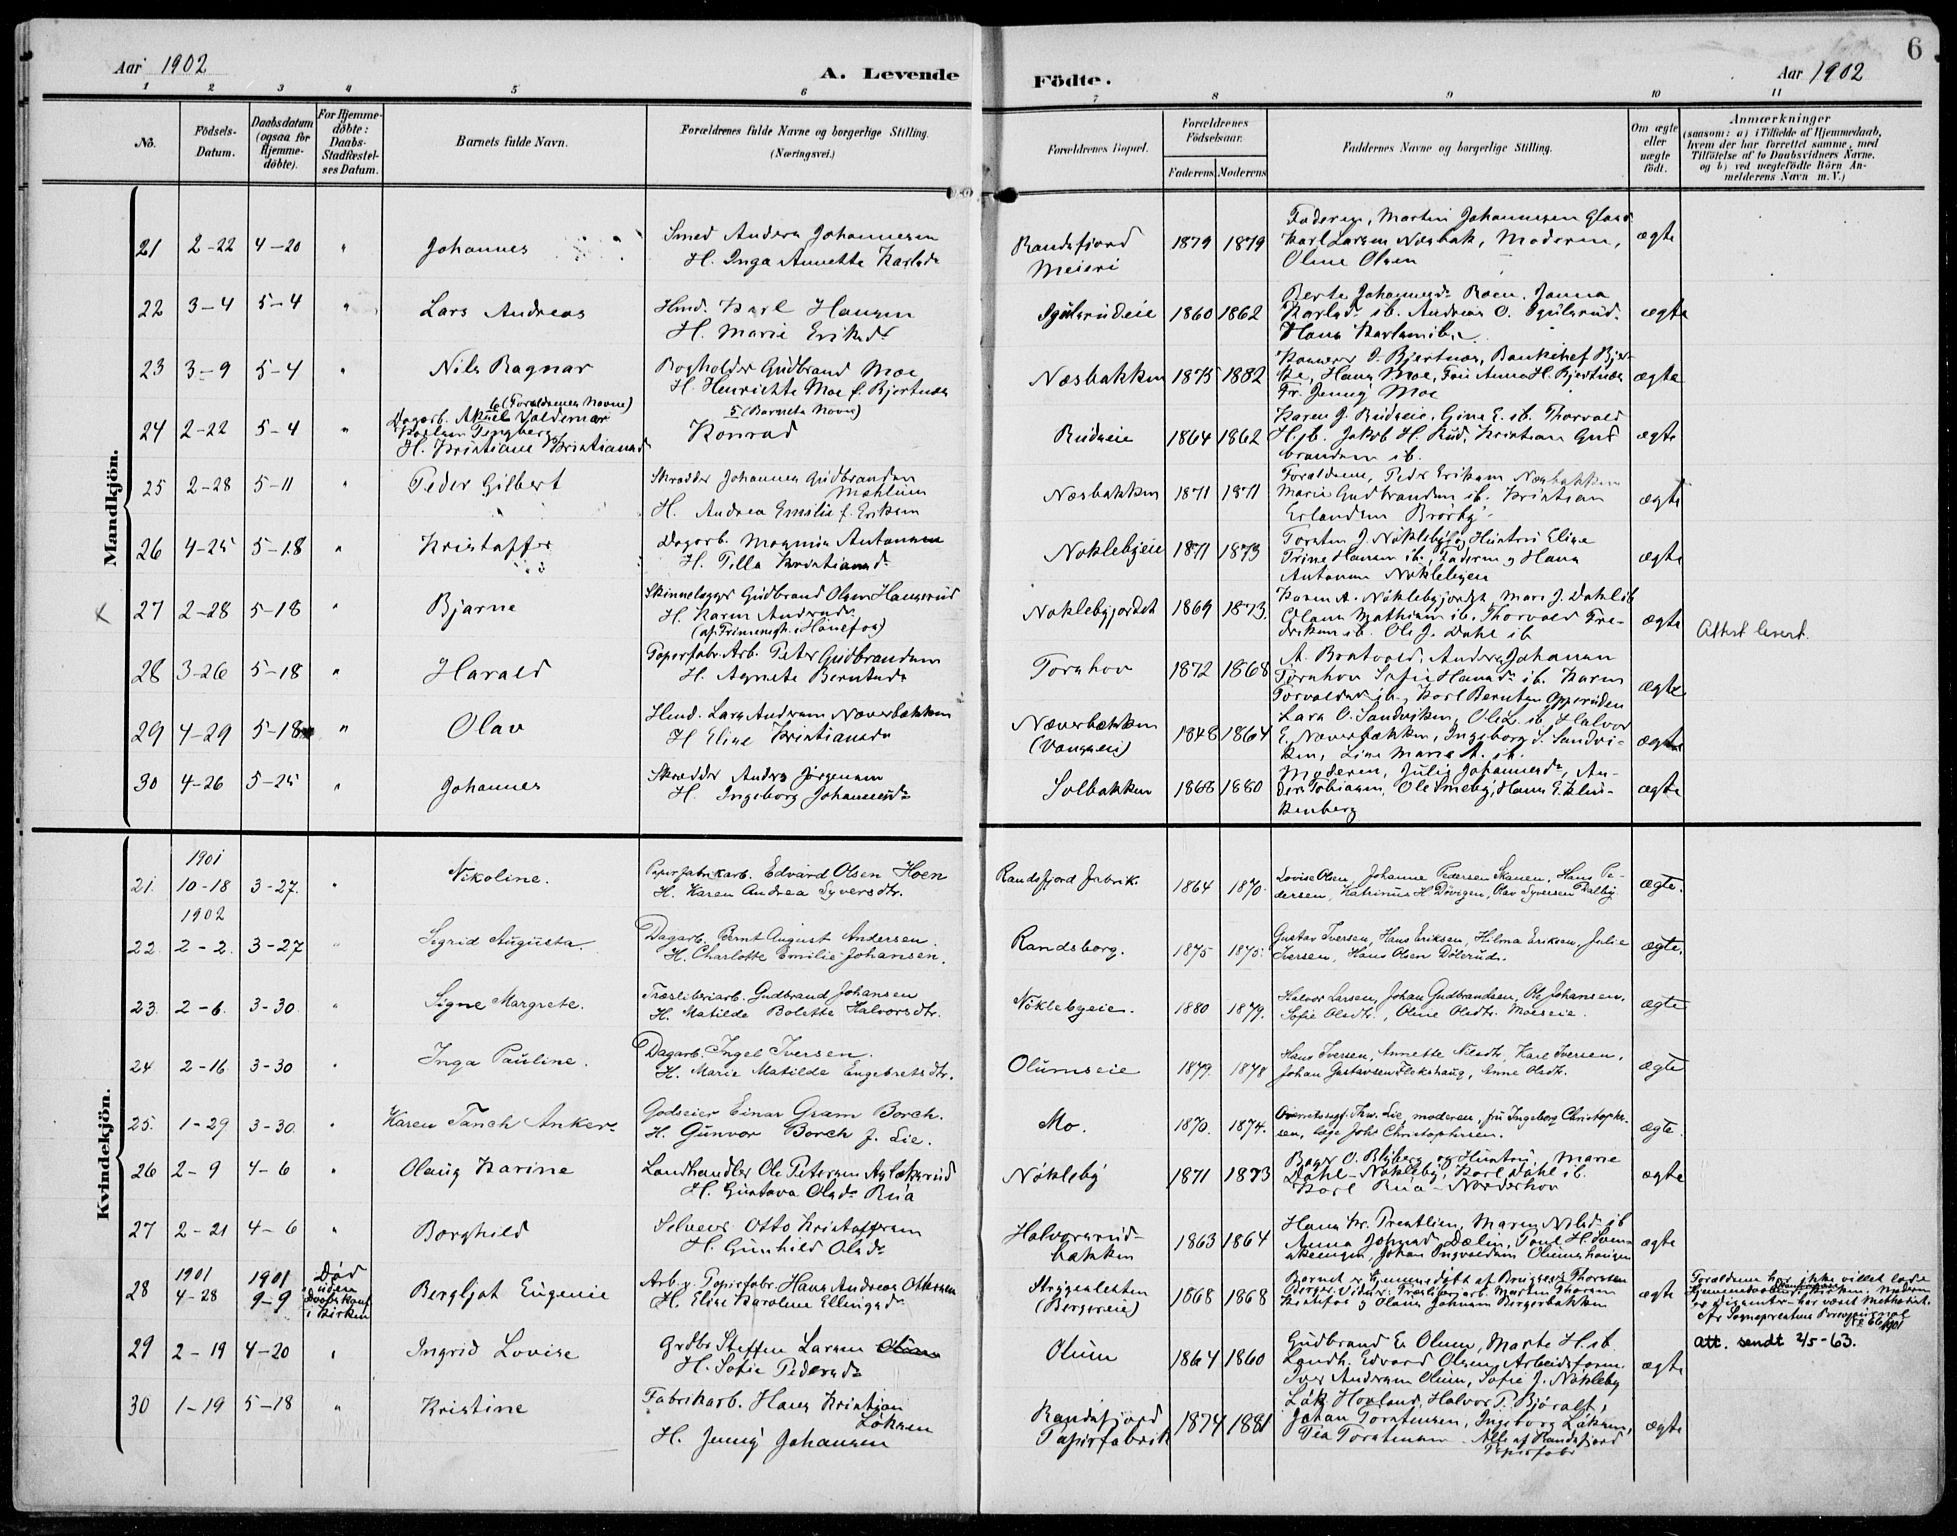 6
Aar 1902
A. Levende
Födte.
Aar 1902
1 2 3 4 5 6 7 8 9 10 11
No.
Födsels-Datum.
Daabsdatum (ogsaa for Hjemme-döbte).
For Hjemme-döbte: Daabs-Stadfæstel-ses Datum.
Barnets fulde Navn.
Forældrenes fulde Navne og borgerlige Stilling.
(Næringsvei.)
Forældrenes Bopæl.
Forældrenes Födselsaar.
Faderens Moderens
Faddernes Navne og borgerlige Stilling.
Om ægte eller uægte födt.
Anmærkninger
(saasom: a) i Tilfælde af Hjemmedaab, hvem der har forrettet samme, med Tilföielse af to Daabsvidners Navne, og b) ved uægtefödte Börn An-melderens Navn m. V.)
Mandkjön.
21 2-22 4-20 " Johannes
Smed Anders Johannesen
H. Inga Annette Karlsdr
Randsfjord
Meieri
1879 1879
Faderen, Martin Johannesen
Karl Larsen Næsbak, Moderen,
Oline Olsen
ægte
22 3-4 5-4 " Lars Andreas
Hmd. Karl Hansen
H. Marie Eriksdr
1860 1862
Berte Johannesdr Roen,
Karlsdr ib. Andreas O.
Hans Karlsen ib.
ægte
23 3-9 5-4 " Nils Ragnar
Bogholder Gudbrand Moe
H. Henriette Moe f. Bjertnæs
Næsbakken
1875 1882
J. Bjertnæs, Bankchef Bjer-
ke, Hans Moe, Frk Anna H. Bjertnæs
Fr. Jenny Moe
ægte
24 2-22 5-4 "
6 (Forældrenes Navne)
Dagarb. Aksel Valdemar
Karlsen Tingberg
H. Kristiane Kristiansd
5 (Barnets Navn)
Konrad
Rudseie
1864 1862
Karen J. Rudseie, Gina E. ib. Thorvald
H. ib. Jakob H. Rud, Kristian Gud
brandsen ib.
ægte
25 2-28 5-11 " Peder Gilbert
Skrædder Johannes Gudbrandsen
Mæhlum
H. Andrea Emilie f. Eriksen
Næsbakken
1871 1871
Forældrene, Peder Eriksen Næsbakken
Marie Gudbrandsen ib. Kristian
Erlandsen Brørby
ægte
26 4-25 5-18 " Kristoffer
Dagarb. Magnus Antonsen
H. Tilla Kristiansdr
Nøklebyeie
1871 1873
Torsten J. Nøkleby og Hustru Elise
Trine Hansen ib., Faderen og Hans
Antonsen Nøklebyeie
ægte
27 2-28 5-18 " Bjarne
Skinnelægger Gudbrand Olsen Haugerud
H. Karen Andersdr
(af Frimenigh. i Hönefos)
Nøklebyjordet
1869 1873.
Karen A. Nøklebyjordet, Mari J. Dahl ib
Mathisen ib. Thorvald Fre-
driksen ib. Ole J. Dahl ib
ægte
Attest levert.
28 3-26 5-18 " Harald
Papirfabr. Arb. Peter Gudbrandsen
H. Agnete Berntsdr
Tornhov
1872 1868
A. Bratvold, Anders Johansen
Tornhov Sofie Hansdr ib. Karen
Torvaldsdr ib., Karl Berntsen Opperuden
ægte
29 4-29 5-18 " Olav
Hmd. Lars Andersen Næverbækken
H Eline Kristiansdr
Næverbækken
1848 1864
Lars O. Sandviken, Ole L. ib, Halvor
E. Næverbækken, Ingeborg S. Sandvi-
ken, Lina Marie A. ib.
ægte
30 4-26 5-25 " Johannes
Skrædder Anders Jørgensen
H. Ingeborg Johannesdr
Solbakken
1868 1880
Moderen, Julie Johannesdr, An-
ders Tobiasen, Ole Smeby, Hans G. Klin-
kenberg
ægte
Kvindekjön.
1901
21. 10-18 3-27. " Nikoline.
Papirfabrikarb. Edvard Olsen Hoen
H. Karen Andrea Syversdtr.
Randsfjord fabrik.
1864 1870.
Lovise Olsen, Johanne Pedersen Skanen, Hans Pe-
dersen, Katrinus H. Dövigen, Olav Syversen Dalby.
ægte.
1902
22. 2-2. 3-27 " Sigrid Augusta.
Dagarb. Bernt August Andersen.
H. Charlotte Emilie Johansen.
Randsborg.
1875 1875.
Gustav Iversen, Hans Eriksen, Hilma Eriksen, Julie
Iversen, Hans Olsen Dölerud.
ægte.
23. 2-6. 3-30. " Signe Margrete.
Træsliberiarb. Gudbrand Johansen
H. Matilde Bolette Halvorsdtr.
Nöklebyeie.
1880 1879.
Halvor Larsen, Johan Gudbrandsen, Ole Johansen,
Sofie Olsdtr., Oline Olsdtr. Moeseie.
ægte
24 2-16 3-30 " Inga Pauline.
Dagarb. Ingel Iversen.
H. Marie Matilde Engebretsdtr.
Olumseie
1879. 1878
Hans Iversen, Annette Nilsdtr, Karl Iversen,
Johan Gustavsen Flekshaug, Anne Olsdtr.
ægte
25. 1-29 3-30. " Karen Tanch Anker.
Godseier Einar Gram Borch.
H. Gunvor Borch f. Lie.
Mo.
1870. 1874.
Overretssagf. Thv. Lie, moderen, fru Ingeborg Christopher-
sen, læge Johs Christophersen.
ægte.
26 2-9 4-6 " Olaug Karine
Landhandler Ole Petersen Aslaksrud
H. Gustava Olsdr Rua
Nökleby
1871 1873
Bager O. Blyberg og Hustru, Marie
Dahl-Nökleby, Karl Dahl ib.
Karl Rua-Norderhov
ægte
27 2-21 4-6 " Borghild
Selveier Otto Kristoffersen
H. Gunhild Olsdr
Halvorsrud-
bakken
1863 1864
Hans Kr. Prestlien, Maren Nilsdr ib
Anna Johnsd Dælin, Paul H. Sven-
Johan Ingvaldsen Olimshaugen
ægte
28 1901
4-28
1901
9-9
Död
uden
Daabskast
i kirken
Bergljot Eugenie
Arb. v. Papirfabr. Hans Andreas Ottersen
H. Elise Karoline Ellingsdr
Stryganlesten
(Bergereie)
1868 1868
Barnet er hjemmedöbt af Brugseier Thorsten
Berger. Vidner: Træsliberarb. Martin Thoresen
Kistefos og Olaus Johnsen Bergerbakken
ægte
Forældrene har ikke villet lade
Hjemmedaaben i kirken. Moderen
er dissenter - har været Methodist.
Att. sendt 2/5-63.
29 2-19 4-20 " Ingrid Lovise
Grdbr Steffen Larsen Olum
H. Sofie Pedersdr
Olum
1864 1860
Gudbrand E. Olum, Marte H. ib.
Landh. Edvard Olsen, Arbeidsform.
Iver Andersen Olum, Sofie J. Nökleby
ægte
30 1-19 5-18 " Kristine
Fabrikarb. Hans Kristian
Löksen
H. Jenny Johansen
Randsfjord
Papirfabrik
1874 1881
Løk Hovland, Halvor P. Björalt,
Johan Torstensen, Ingeborg Löksen,
Tea Torstensen. Alle af Randsfjord
Papirfabr
ægte